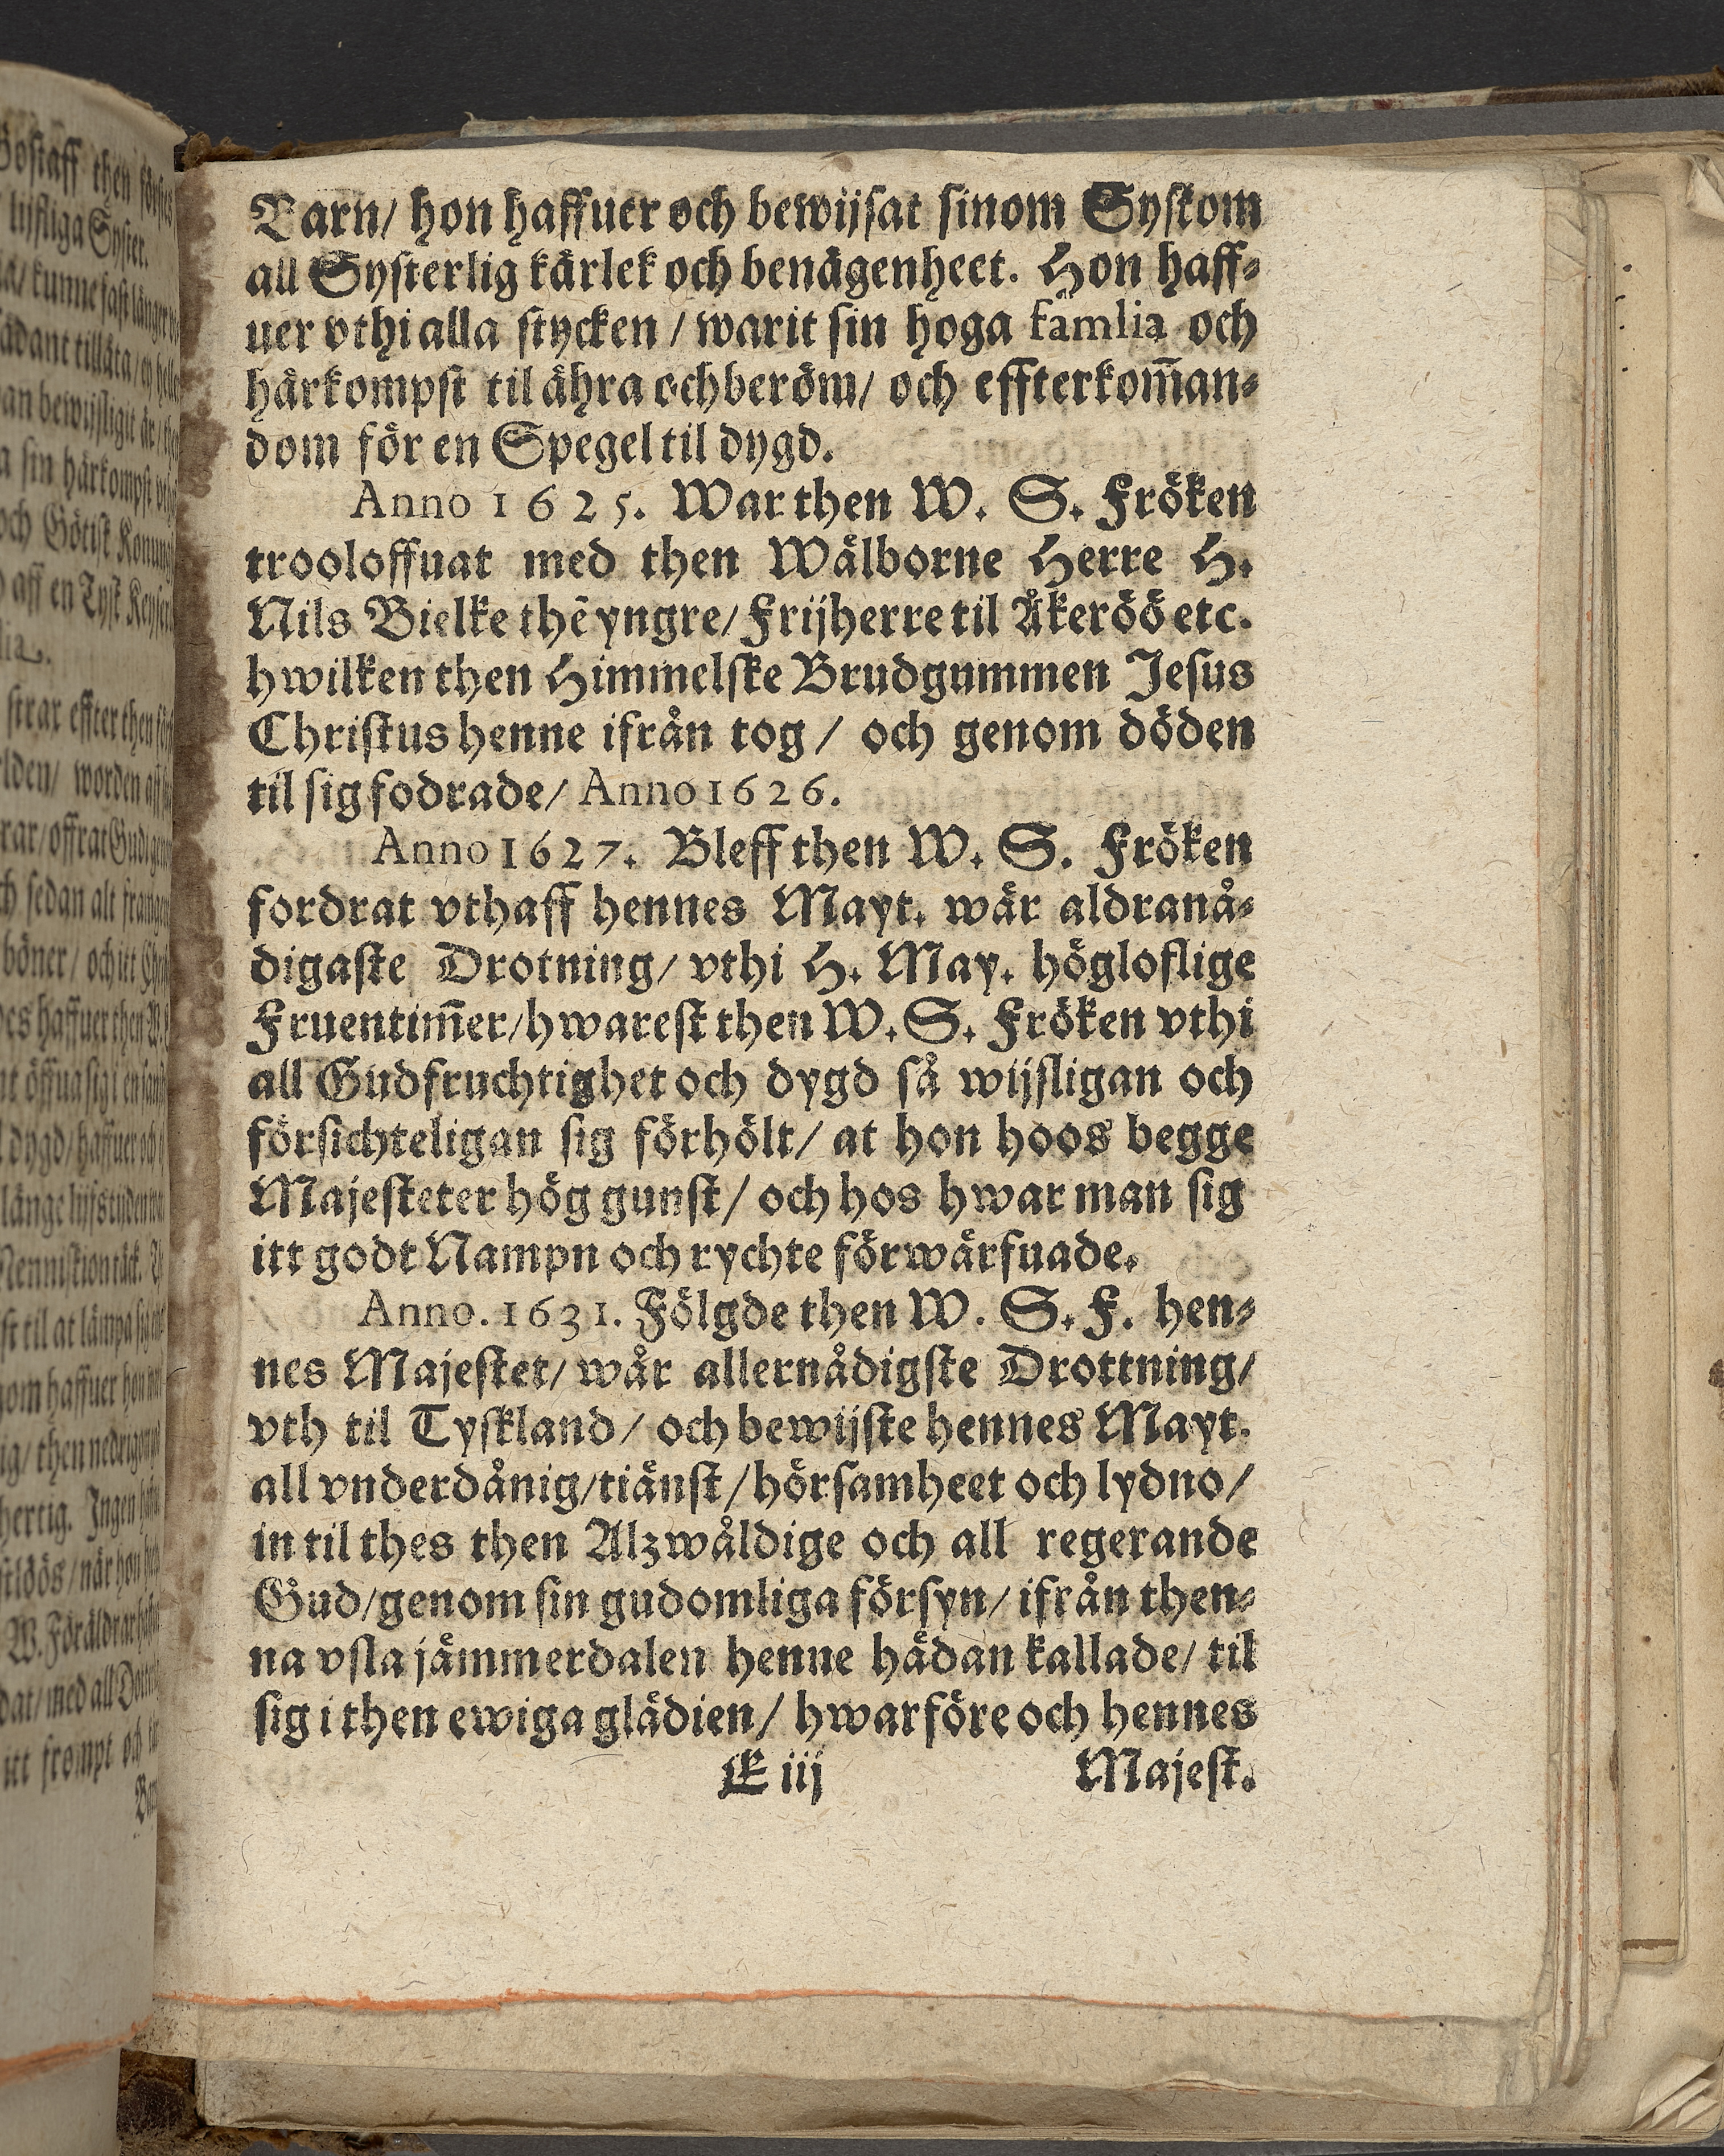 Barn/ hon haffuer och bewijsat sinom Syskom
all Systerlig kärlek och benägenheet. Hon haff-
uer vthi alla stycken / warit sin hoga famlia och
härkompst til ähra och beröm/ och effterkom̄an-
dom för en Spegel til dygd.
Anno 1625. War then W. S. Fröken
trooloffuat med then Wälborne Herre H.
Nils Bielke thē yngre/ Frijherre til Åkeröö etc.
hwilken then Himmelske Brudgummen Jesus
Christus henne ifrån tog / och genom döden
til sig fodrade/ Anno 1626.
Anno 1627. Bleff then W. S. Fröken
fordrat vthaff hennes Mayt. wår aldranå-
digaste Drotning/ vthi H. May. högloflige
Fruentim̄er/ hwarest then W. S. Fröken vthi
all Gudfruchtighet och dygd så wijsligan och
försichteligan sig förhölt/ at hon hoos begge
Majesteter hög gunst/ och hos hwar man sig
itt godt Nampn och rychte förwärfuade.
Anno. 1631. Fölgde then W. S. F. hen-
nes Majestet/ wår allernådigste Drottning/
vth til Tyskland / och bewijste hennes Mayt.
all vnderdånig/ tiänst / hörsamheet och lydno/
in til thes then Alzwåldige och all regerande
Gud/ genom sin gudomliga försyn/ ifrån then-
na vsla jämmerdalen henne hädan kallade/ til
sig i then ewiga glädien/ hwarföre och hennes
E iij Majest.